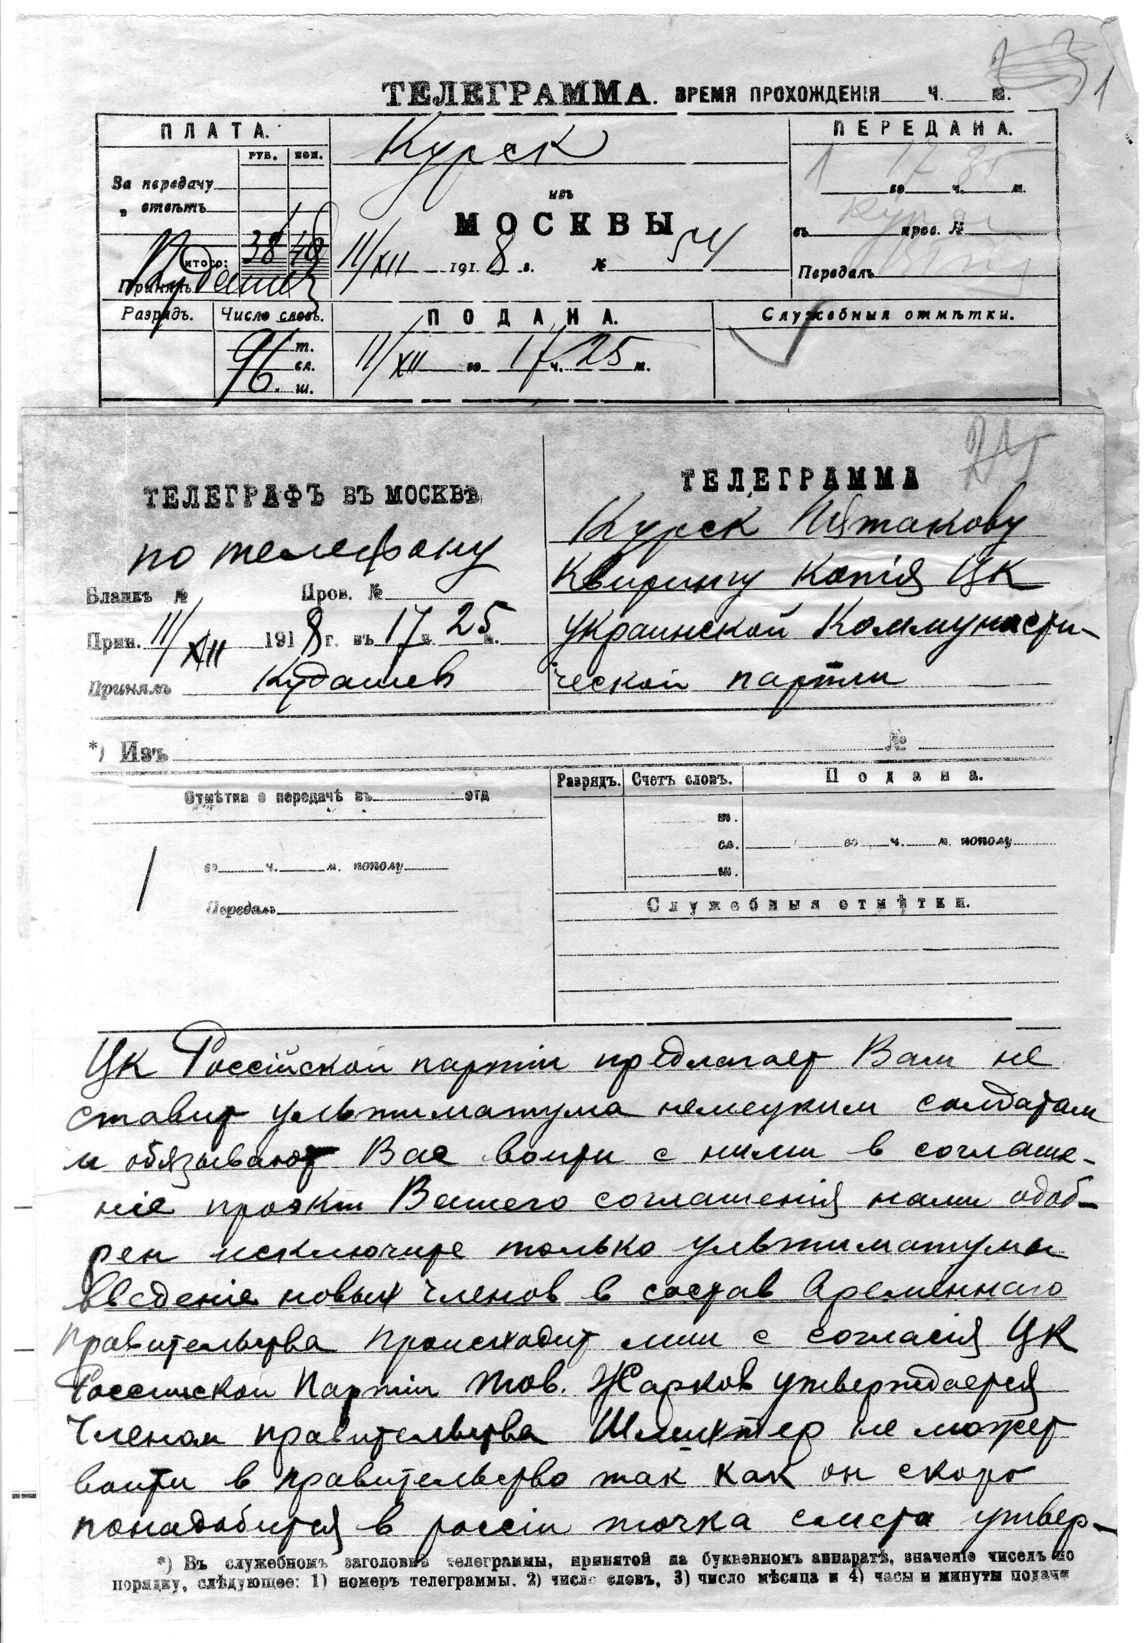 1
ТЕЛЕГРАММА. ВРЕМЯ ПРОХОЖДЕНІЯ ч. м.
ПЛАТА.
РУБ. КОП.
За передачу
„ отвѣтъ
Итого: 38 40
Принялъ
Курск
изъ
МОСКВЫ
11/XII 1918 г. № 54
ПЕРЕДАНА.
1 17 35
во ч. м.
въ пров. №
Передалъ
Разрядъ. Число словъ.
96 т.
сл.
ш.
ПОДАНА.
11/XII во 17 ч. 25 м.
Служебныя отмѣтки.
ТЕЛЕГРАФЪ ВЪ МОСКВѢ
по телефону
Бланкъ № Пров. №
Прин. 11/XII 1918 г. въ 17 ч. 25 м.
Принялъ Кудашев
ТЕЛЕГРАММА
Курск Пятакову
Квирингу Копія ЦК
украинской Коммунисти-
ческой партии
*) Изъ №
Отмѣтка о передачѣ въ отд
во ч. м. пополу
Передалъ
Разрядъ. Счетъ словъ. Подана.
т.
сл. во ч. м. пополу
ш.
Служебныя отмѣтки.
ЦК Россійской партіи предлагает Вам не
ставит ультиматума немецким солдатам
и обязывают Вас воити с ними в соглаше-
ніе проэкт Вашего соглашенія нами одоб-
рен исключире только ультиматумы
введеніе новых членов в состав временнаго
правительства происходит лиш с согласія ЦК
Россииской Партіи Тов. Жарков утверждается
членом правительства Шлихтер не может
воити в правительство так как он скоро
понадобится в россіи точка смета утвер-
*) Въ служебномъ заголовкѣ телеграммы, принятой на буквенномъ аппаратѣ, значеніе чиселъ по
порядку, слѣдующее: 1) номеръ телеграммы. 2) число словъ, 3) число мѣсяца и 4) часы и минуты подачи